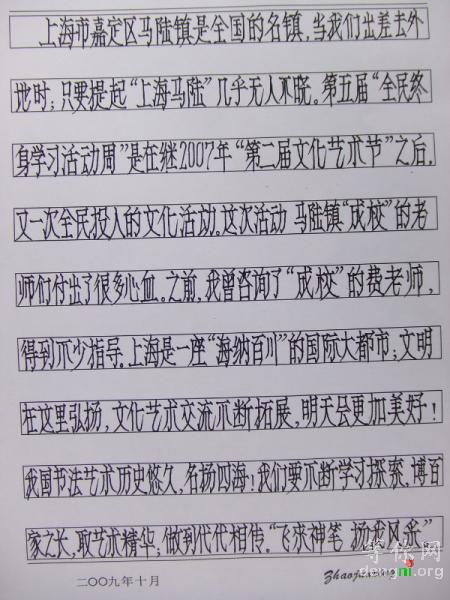 上海市嘉定区马陆镇是全国的名镇,当我们出差去外
地时;只要提起“上海马陆”几乎无人不晓。第五届“全民终
身学习活动周”是在继2007年“第二届文化艺术节”之后,
又一次全民投入的文化活动。这次活动 马陆镇“成校”的老
师们付出了很多心血。之前,我曾咨询了“成校”的费老师,
得到不少指导。上海是一座“海纳百川”的国际大都市;文明
在这里弘扬,文化艺术交流不断拓展,明天会更加美好!
我国书法艺术历史悠久,名扬四海!我们要不断学习探索,博百
家之长,取艺术精华;做到代代相传。“飞来神笔 扬我风采”
二〇〇九年十月
等你网
dengni.org